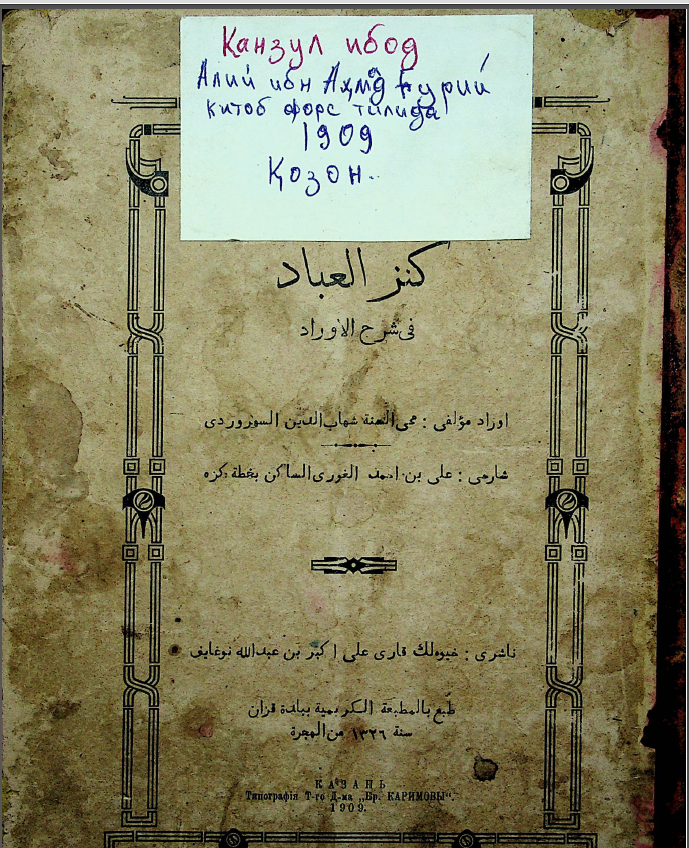 Қанзул ибод
Алий ибн Аҳмад Ғурий
китоб форс тилида
1909
Қозон.
كنز العباد
فى شرح الاوراد
اوراد مؤلفى : محى السنة شهاب الدين السهروردى
شارحى : على بن احمد الغورى الساكن بخطة كزه
ناشرى : خيوه لك قارى على اكبر بن عبدالله نوغايف
طبع بالمطبعة الكريمية ببلدة قزان
سنة ١٣٢٦ من الهجرة
КАЗАНЬ
Типографія Т-го Д-ма „Бр. КАРИМОВЫ“.
1909.